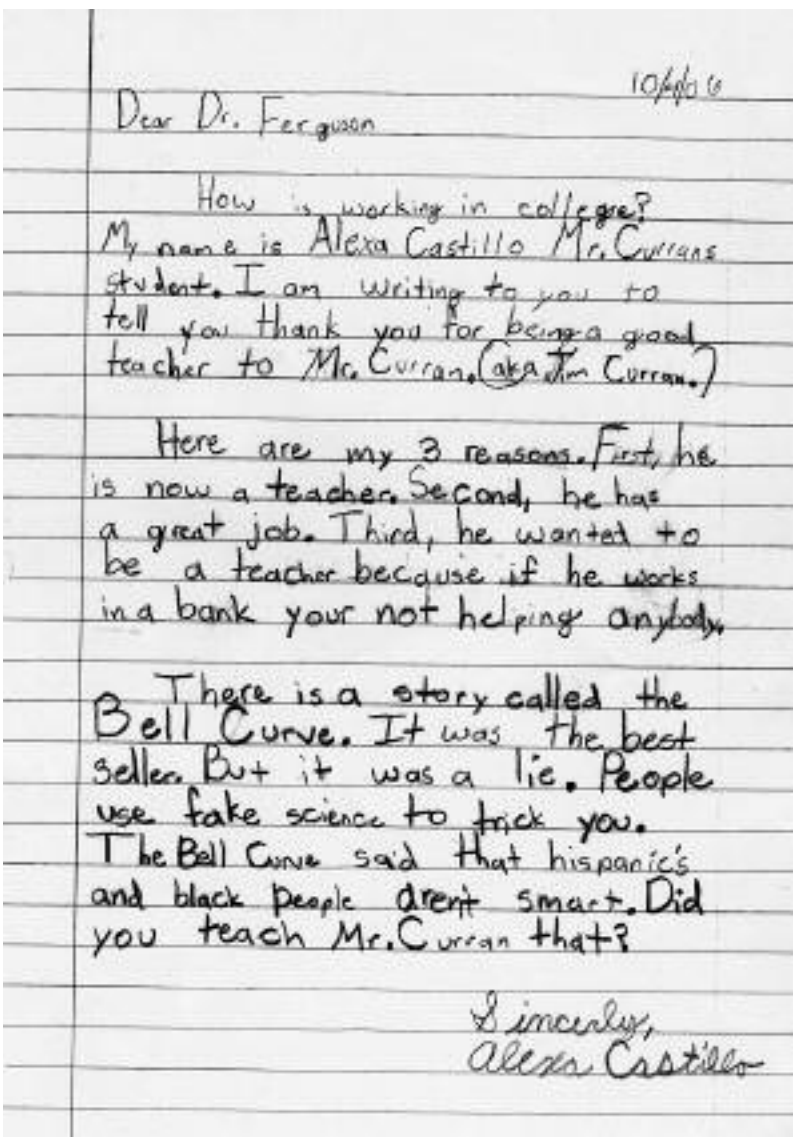 Dear Dr. Ferguson
How is working in college?
My name is Alexa Castillo Mr. Currans
student. I am writing to you to
tell you thank you for being a good
teacher to Mr. Curran. (aka Jim Curran.)
Here are my 3 reasons. First, he
is now a teacher. Second, he has
a great job. Third, he wanted to
be a teacher because if he works
in a bank your not helping anybody.
There is a story called the
Bell Curve. It was the best
seller. But it was a lie. People
use fake science to trick you.
The Bell Curve said that hispanic's
and black people aren't smart. Did
you teach Mr. Curran that?
Sincerly,
Alexa Castillo